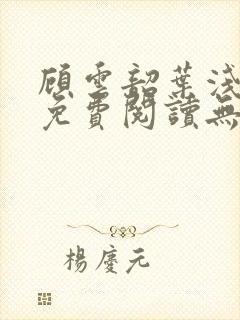 顧雲韶葉淺
免費閱讀無
楊慶元